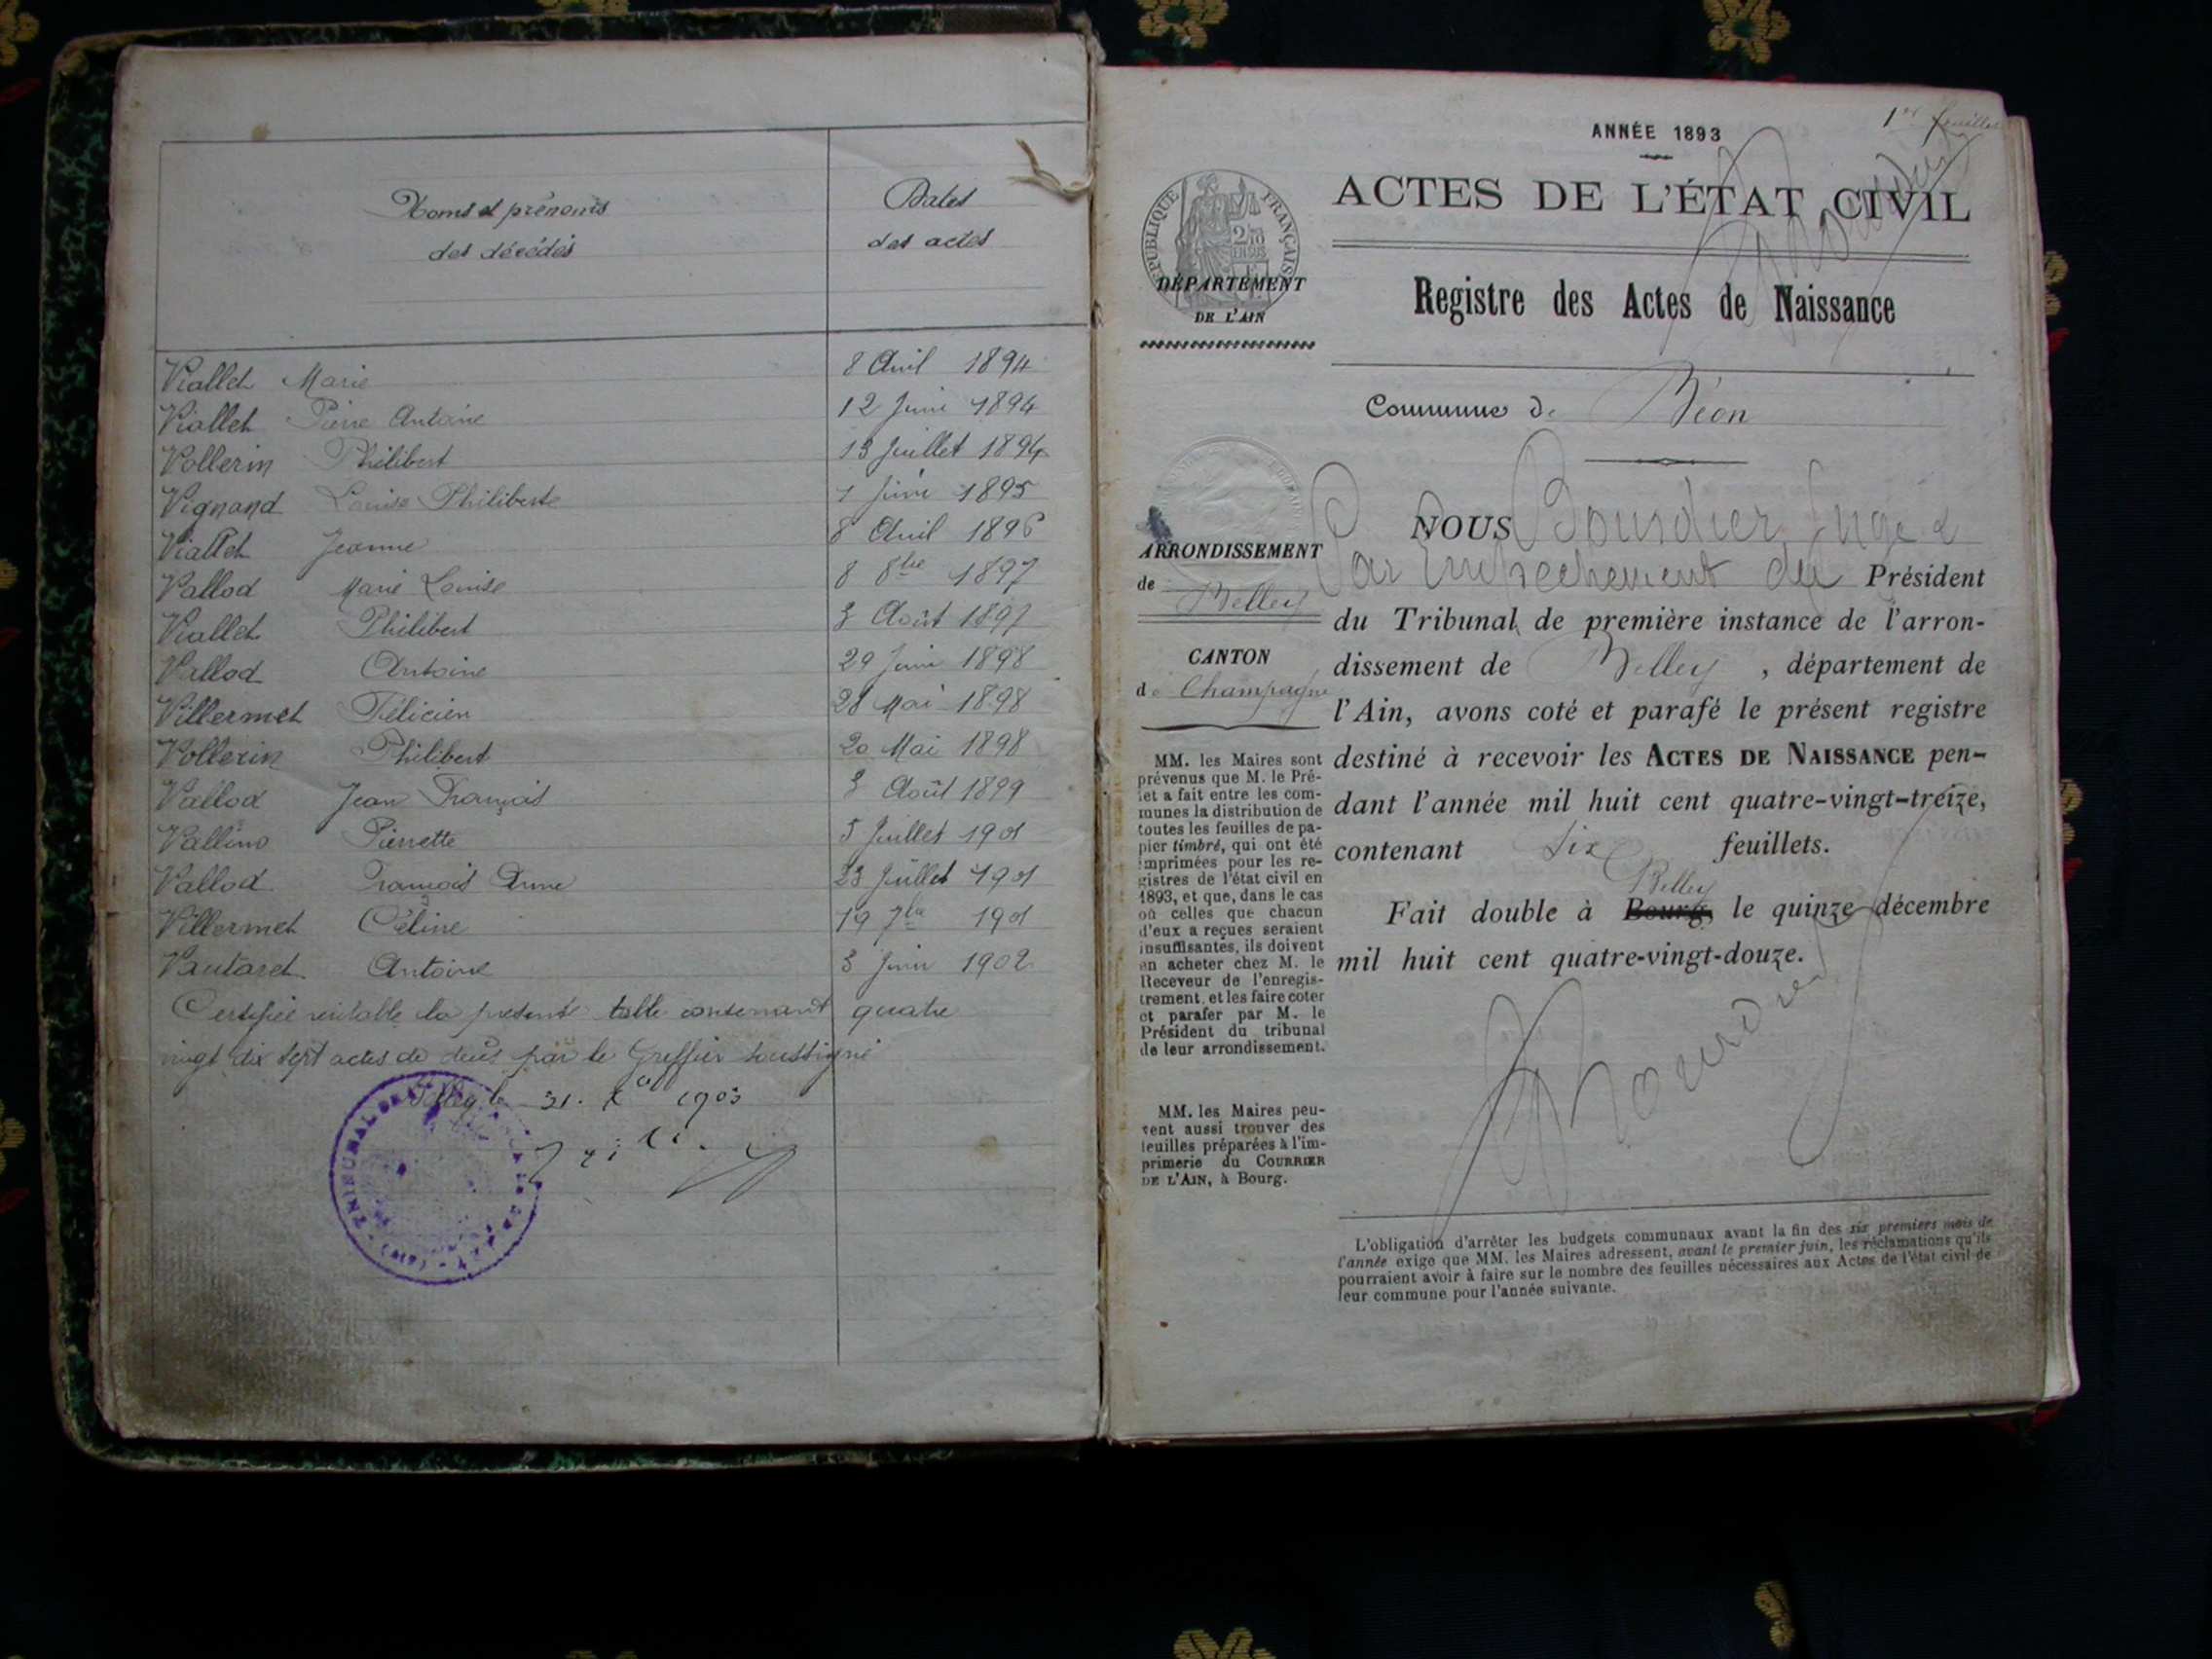 Noms et prénoms
des décédés
Dates
des actes
Viallet Marie 8 Avril 1894
Viallet Pierre Antoine 12 Juin 1894
Vollerin Philibert 13 Juillet 1894
Vignand Louise Philiberte 1 Juin 1895
Viallet Jeanne 8 Avril 1896
Vallod Marie Louise 8 8bre 1897
Viallet Philibert 3 Août 1897
Vallod Antoine 29 Juin 1898
Villermet Félicien 28 Mai 1898
Vollerin Philibert 20 Mai 1898
Vallod Jean François 3 Août 1899
Vallino Pierrette 5 Juillet 1901
Vallod François Anne 23 Juillet 1901
Villermet Céline 19 7bre 1901
Vautaret Antoine 3 Juin 1902
Certifiée véritable la présente table contenant quatre
vingt dix sept actes de décès par le Greffier soussigné
Belley le 31. Xbre 1903
TRIBUNAL
1er feuillet
ANNÉE 1893
ACTES DE L'ÉTAT CIVIL
RÉPUBLIQUE FRANÇAISE
2/10
EN SUS
DÉPARTEMENT
DE L'AIN
Registre des Actes de Naissance
Commune de Béon
NOUS Bourdier Juge
ARRONDISSEMENT
de Belley
Par Empechement du Président
du Tribunal de première instance de l'arron-
dissement de Belley, département de
l'Ain, avons coté et parafé le présent registre
destiné à recevoir les ACTES DE NAISSANCE pen-
dant l'année mil huit cent quatre-vingt-treize,
contenant six feuillets.
Belley
Fait double à Bourg, le quinze décembre
mil huit cent quatre-vingt-douze.
Bourdier
CANTON
de Champagne
MM. les Maires sont
prévenus que M. le Pré-
fet a fait entre les com-
munes la distribution de
toutes les feuilles de pa-
pier timbré, qui ont été
imprimées pour les re-
gistres de l'état civil en
1893, et que, dans le cas
où celles que chacun
d'eux a reçues seraient
insuffisantes, ils doivent
en acheter chez M. le
Receveur de l'enregis-
trement, et les faire coter
et parafer par M. le
Président du tribunal
de leur arrondissement.
MM. les Maires peu-
vent aussi trouver des
feuilles préparées à l'im-
primerie du COURRIER
DE L'AIN, à Bourg.
L'obligation d'arrêter les budgets communaux avant la fin des six premiers mois de
l'année exige que MM. les Maires adressent, avant le premier juin, les réclamations qu'ils
pourraient avoir à faire sur le nombre des feuilles nécessaires aux Actes de l'état civil de
leur commune pour l'année suivante.